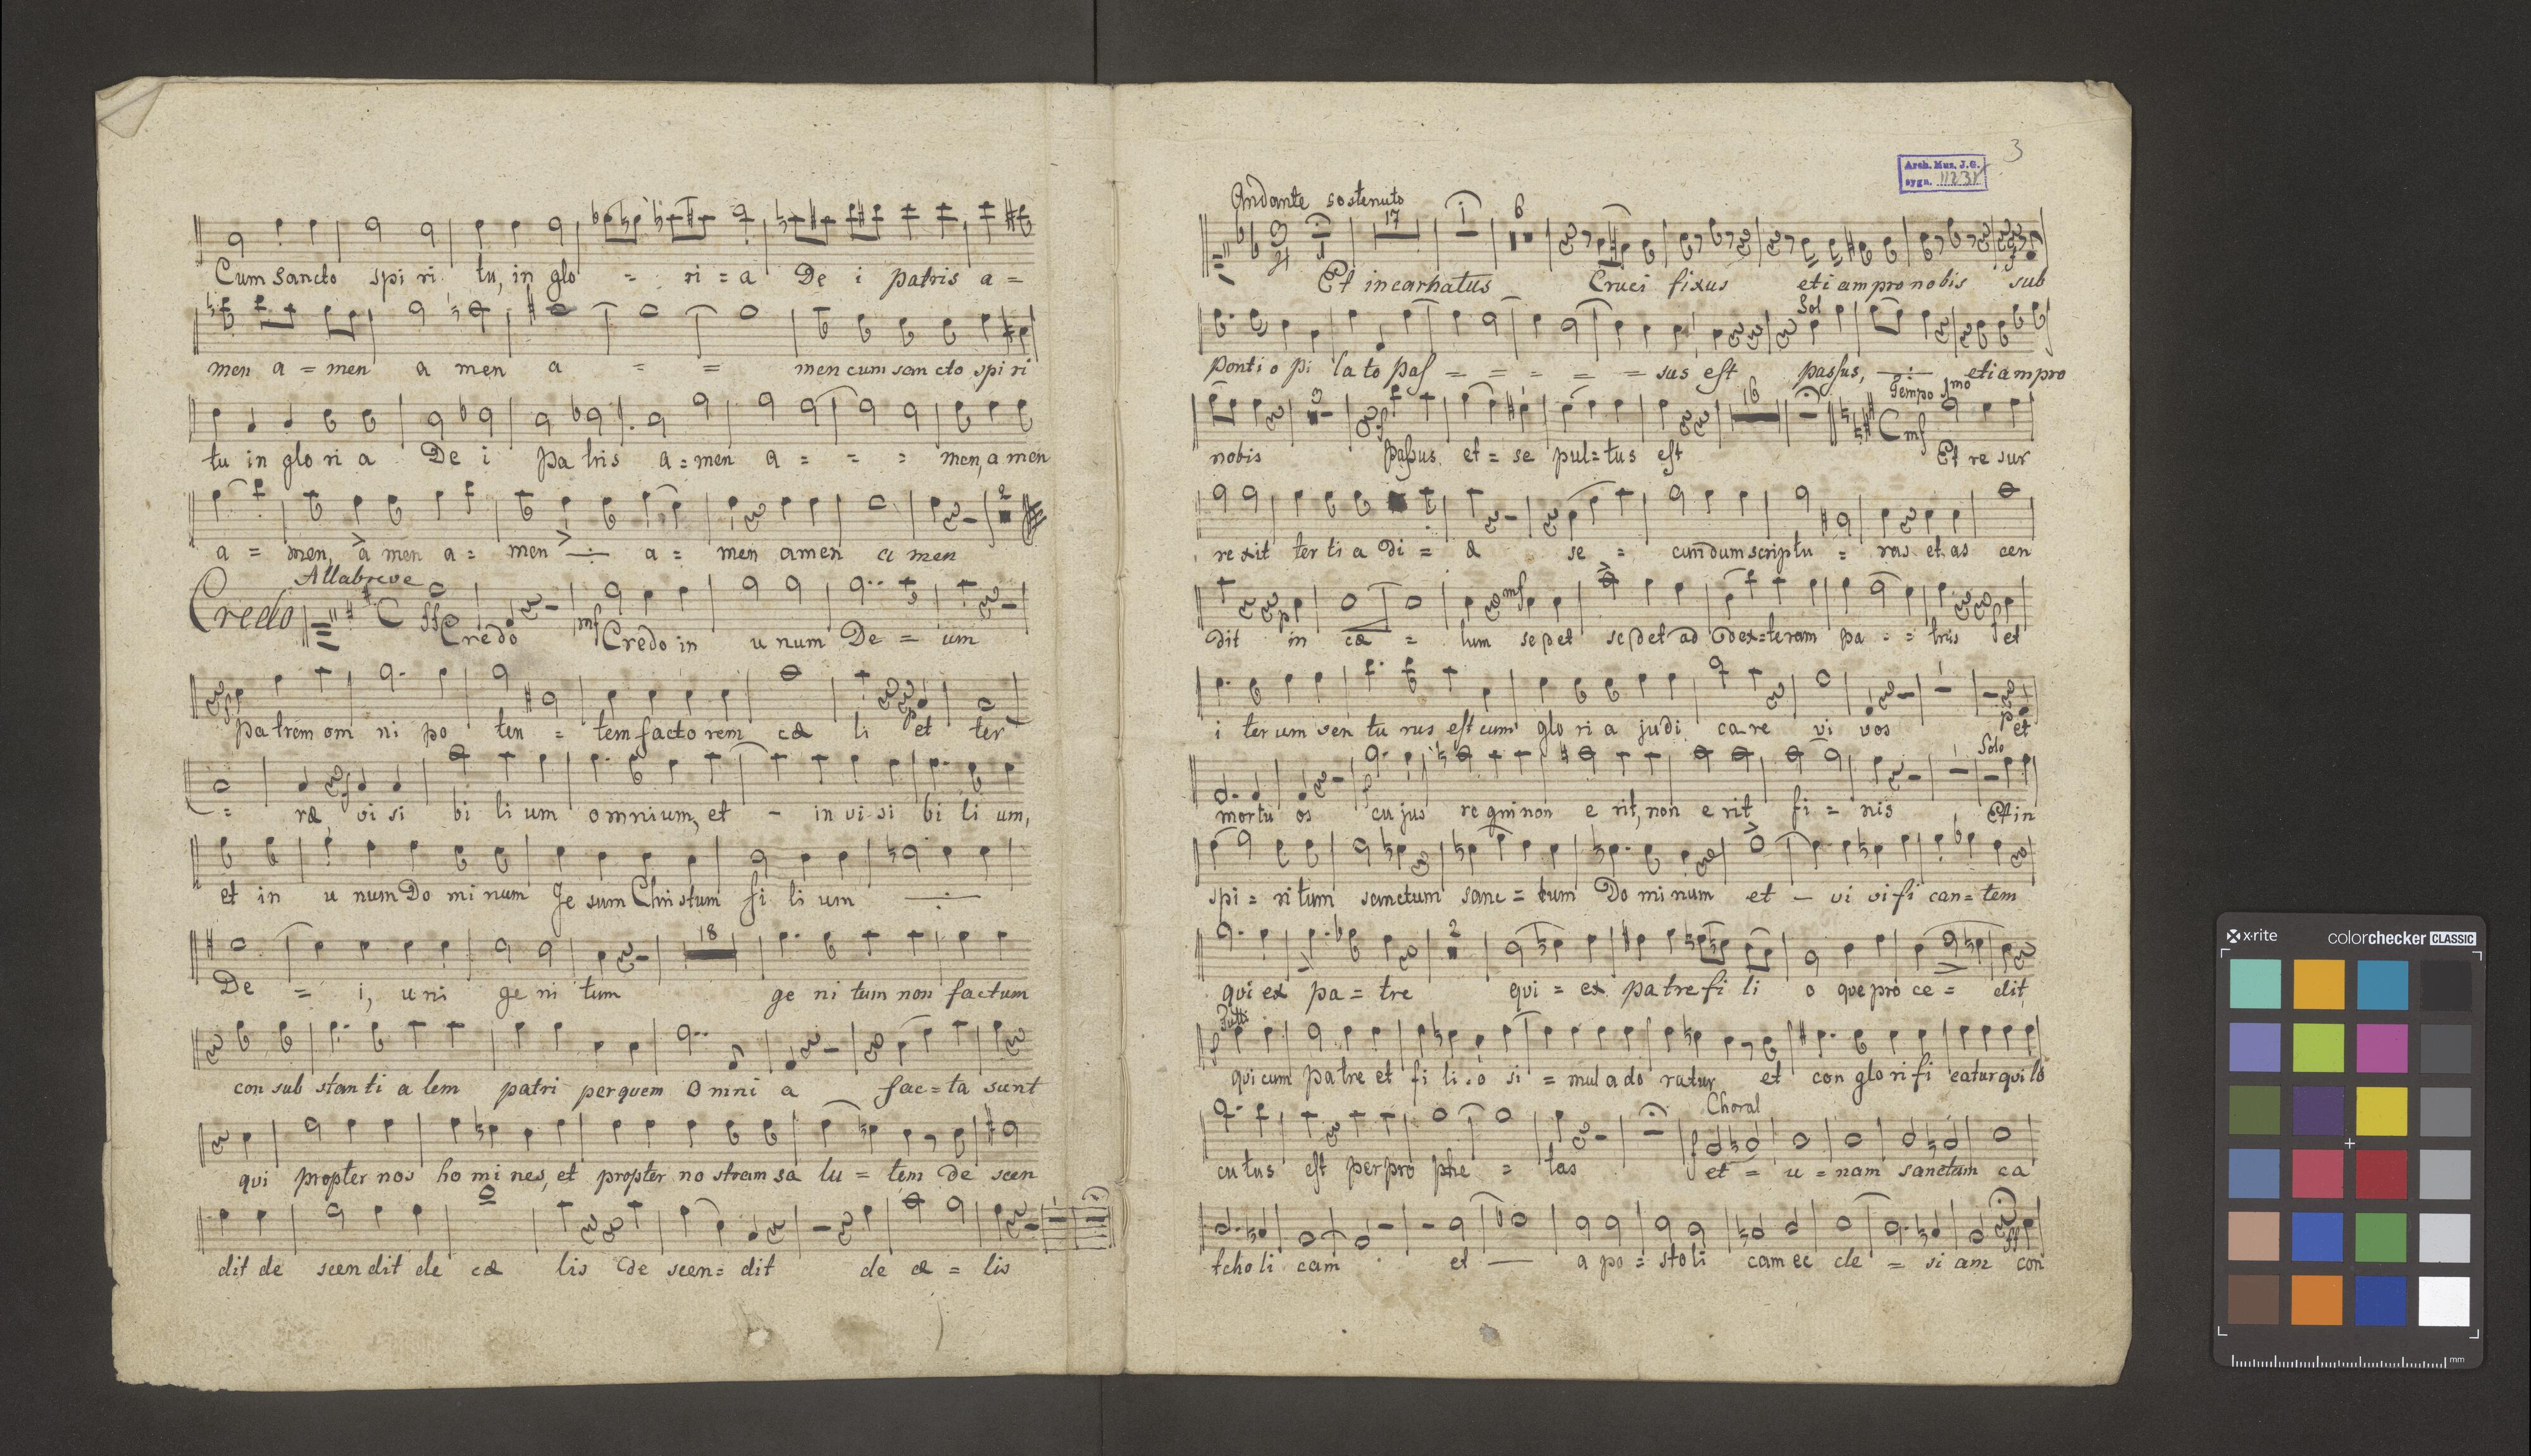 Cum sancto spi ri tu, in glo = ri = a De i patris a =
men a = men a men a = = men cum san cto spi ri
tu in glo ri a De i pa tris a = men a = = = men, a men
a = men, a men a = men ÷ a = men amen a men
Allabreve
Credo C ff Credo mf Credo in u num De = um
Patrem om ni po ten = tem facto rem cæ li et ter
= ræ vi si bi li um omnium, et - in vi si bi li um,
et in u num Do mi num Je sum Christum fi li um ÷
18
De = i, u ni ge ni tum ge ni tum non factum
con sub stan ti a lem patri per quem o mni a fac = ta sunt
qui propter nos ho mi nes, et propter no stram sa lu = tem de scen
dit de scen dit de cæ lis de scen = dit de cæ = lis
Arch. Mus. J.G.
sygn.
3
Andante sostenuto
17 1 6
Et incarnatus Cruci fixus eti am pro nobis sub
Sol
Ponti o Pi la to pas = = = = = sus est passus, ÷ eti am pro
3 16 Tempo 1mo
nobis passus et = se pul = tus est C mf Et re sur
re xit ter ti a Di = a se = cundum scriptu = ras et as cen
p mf
dit in cæ = lum sedet sedet ad dex = teram pa = = tris et
i ter um ven tu rus est cum glo ri a judi ca re vi vos et
Solo
mortu os cujus regni non e rit, non e rit fi = nis Et in
spi = ri tum sanctum sanc = tum Do mi num et - vi vi fi can = tem
2
qui ex pa = tre qui = ex patre fi li o que pro ce = dit
Tutti
qui cum patre et fi li o si = mul ado ratur et con glo ri fi catur qui lo
Choral
cu tus est per pro phe = tas et = u = nam sanctam ca
tcho li cam et — a po = sto li cam ec cle = si am con
x·rite colorchecker CLASSIC
mm